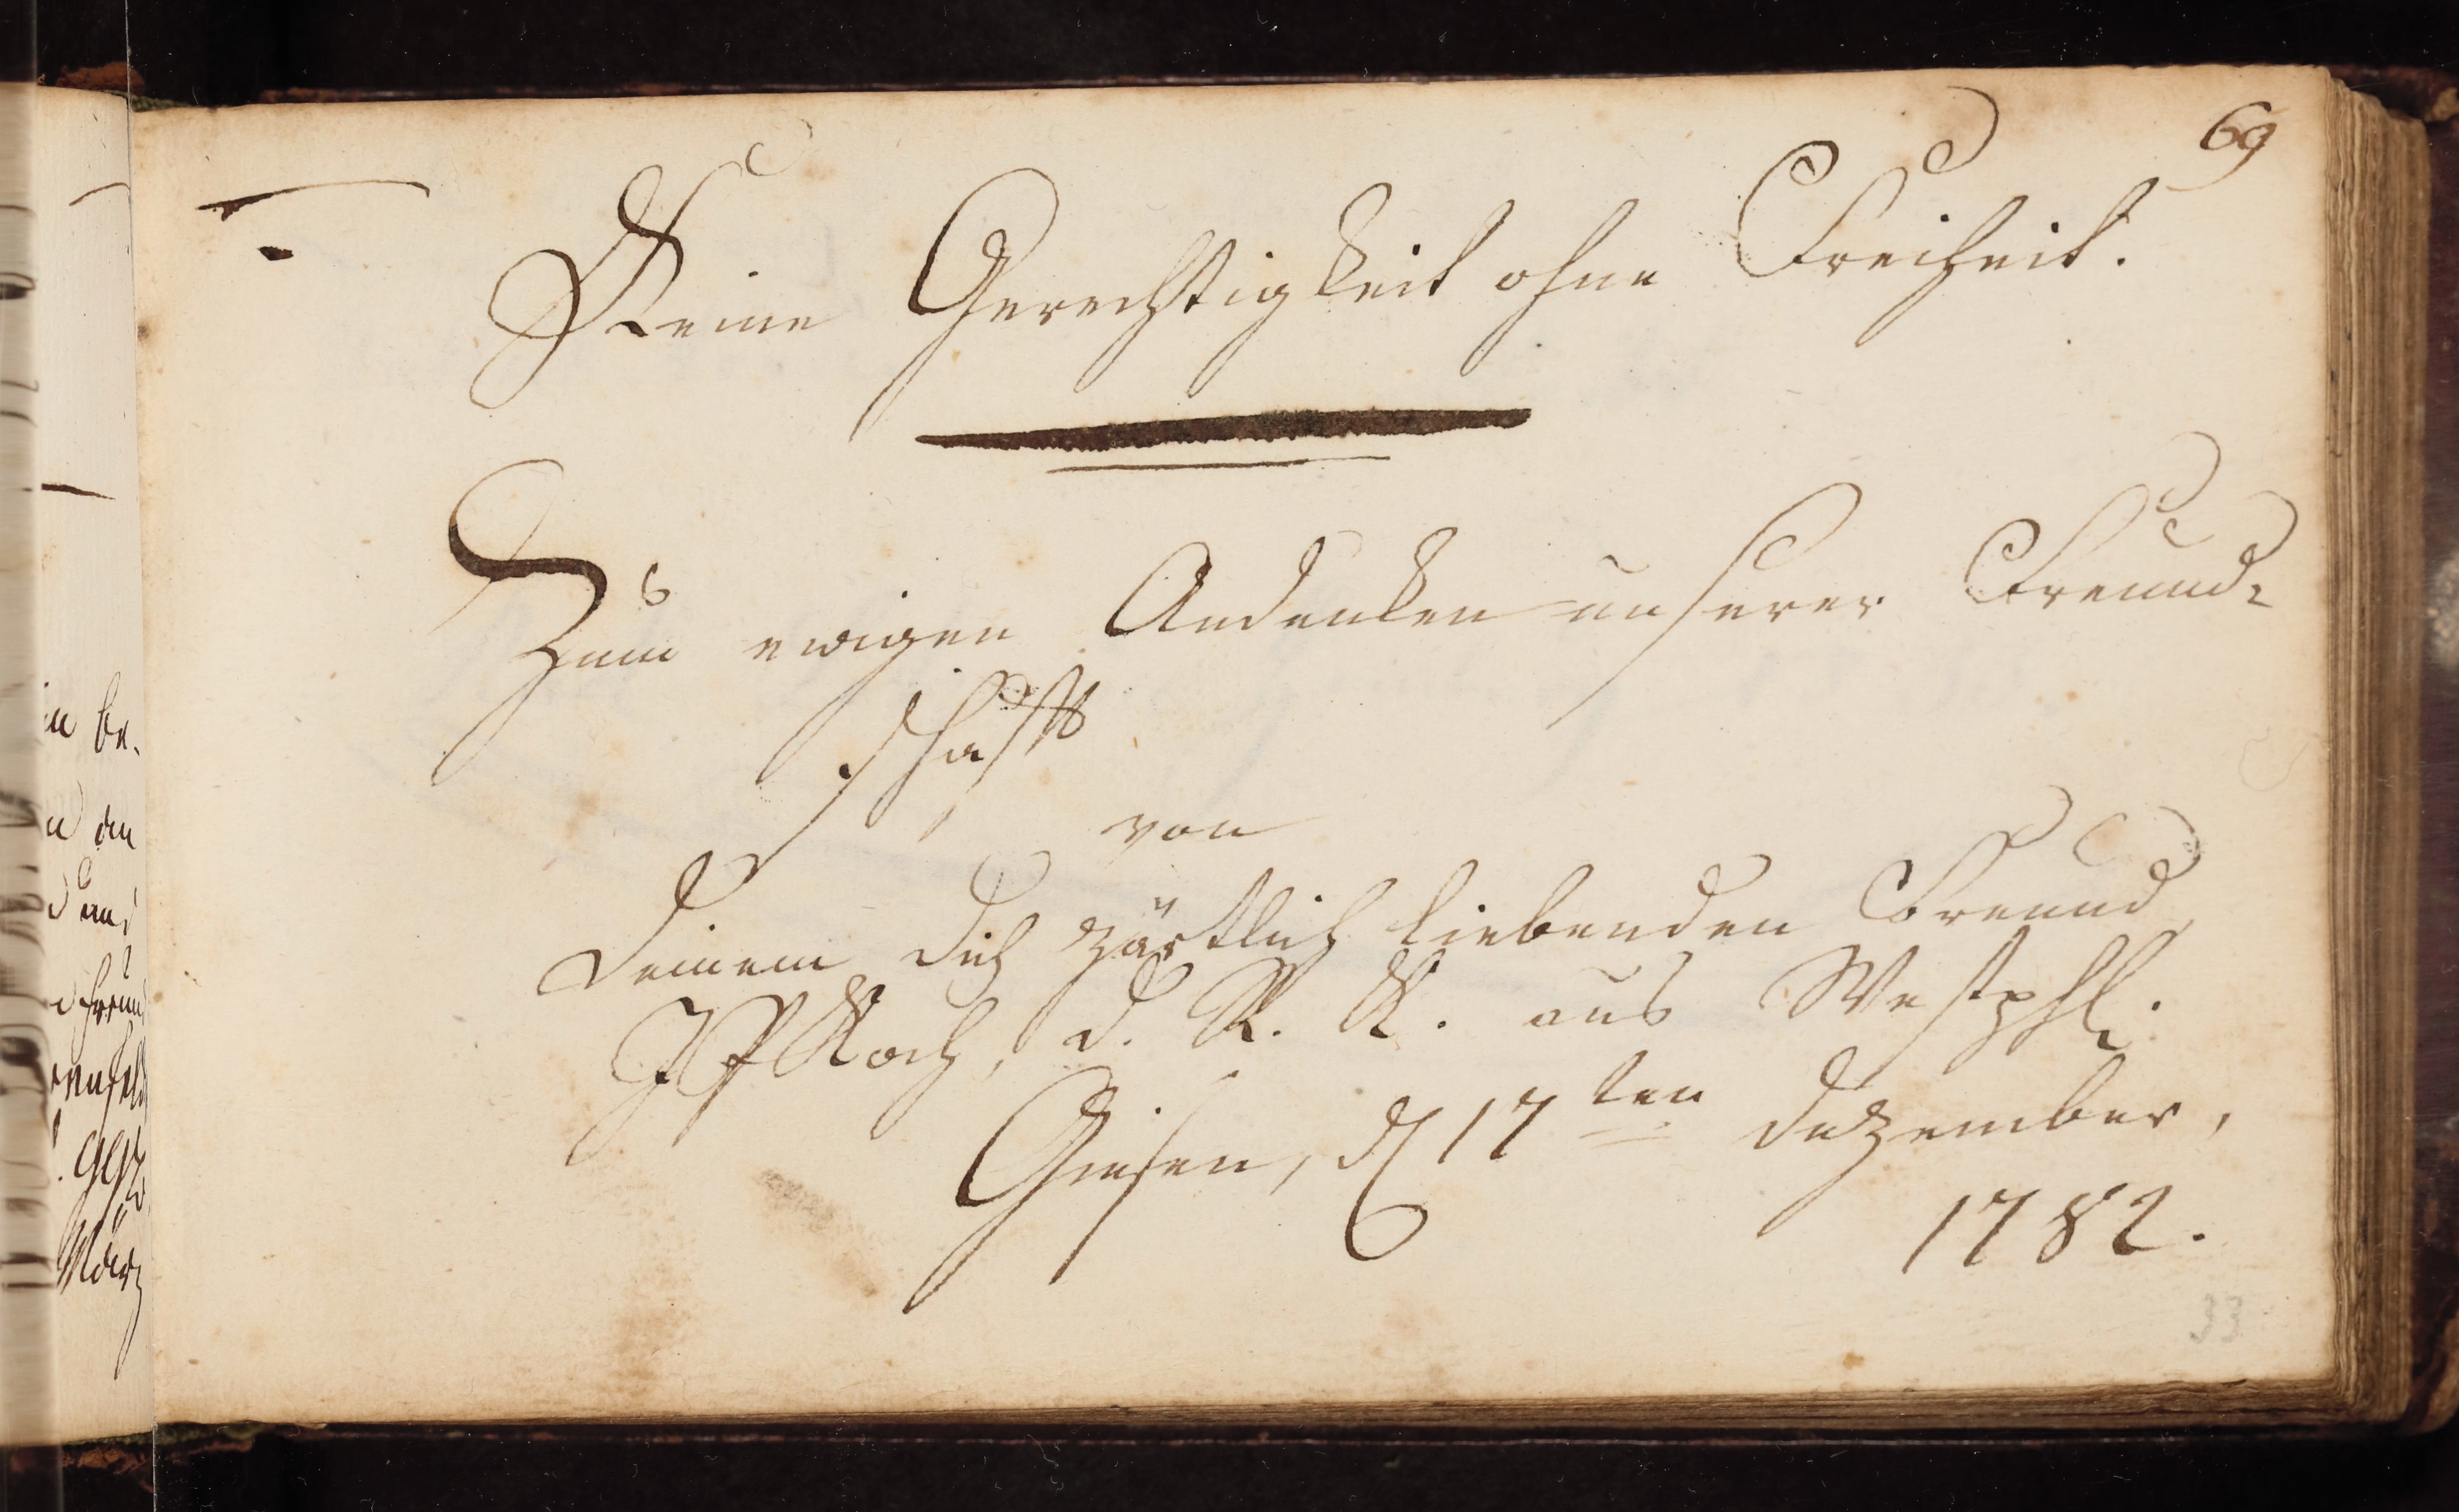 69
Keine Gerechtigkeit ohne Freiheit.
Zum ewigen Andenken unserer Freund-
schafft
von
Deinem Dich zärtlich liebenden Freund
Koch, d. R. K. aus Westphl.
Giesen, d 17ten Dezember,
1782.
33